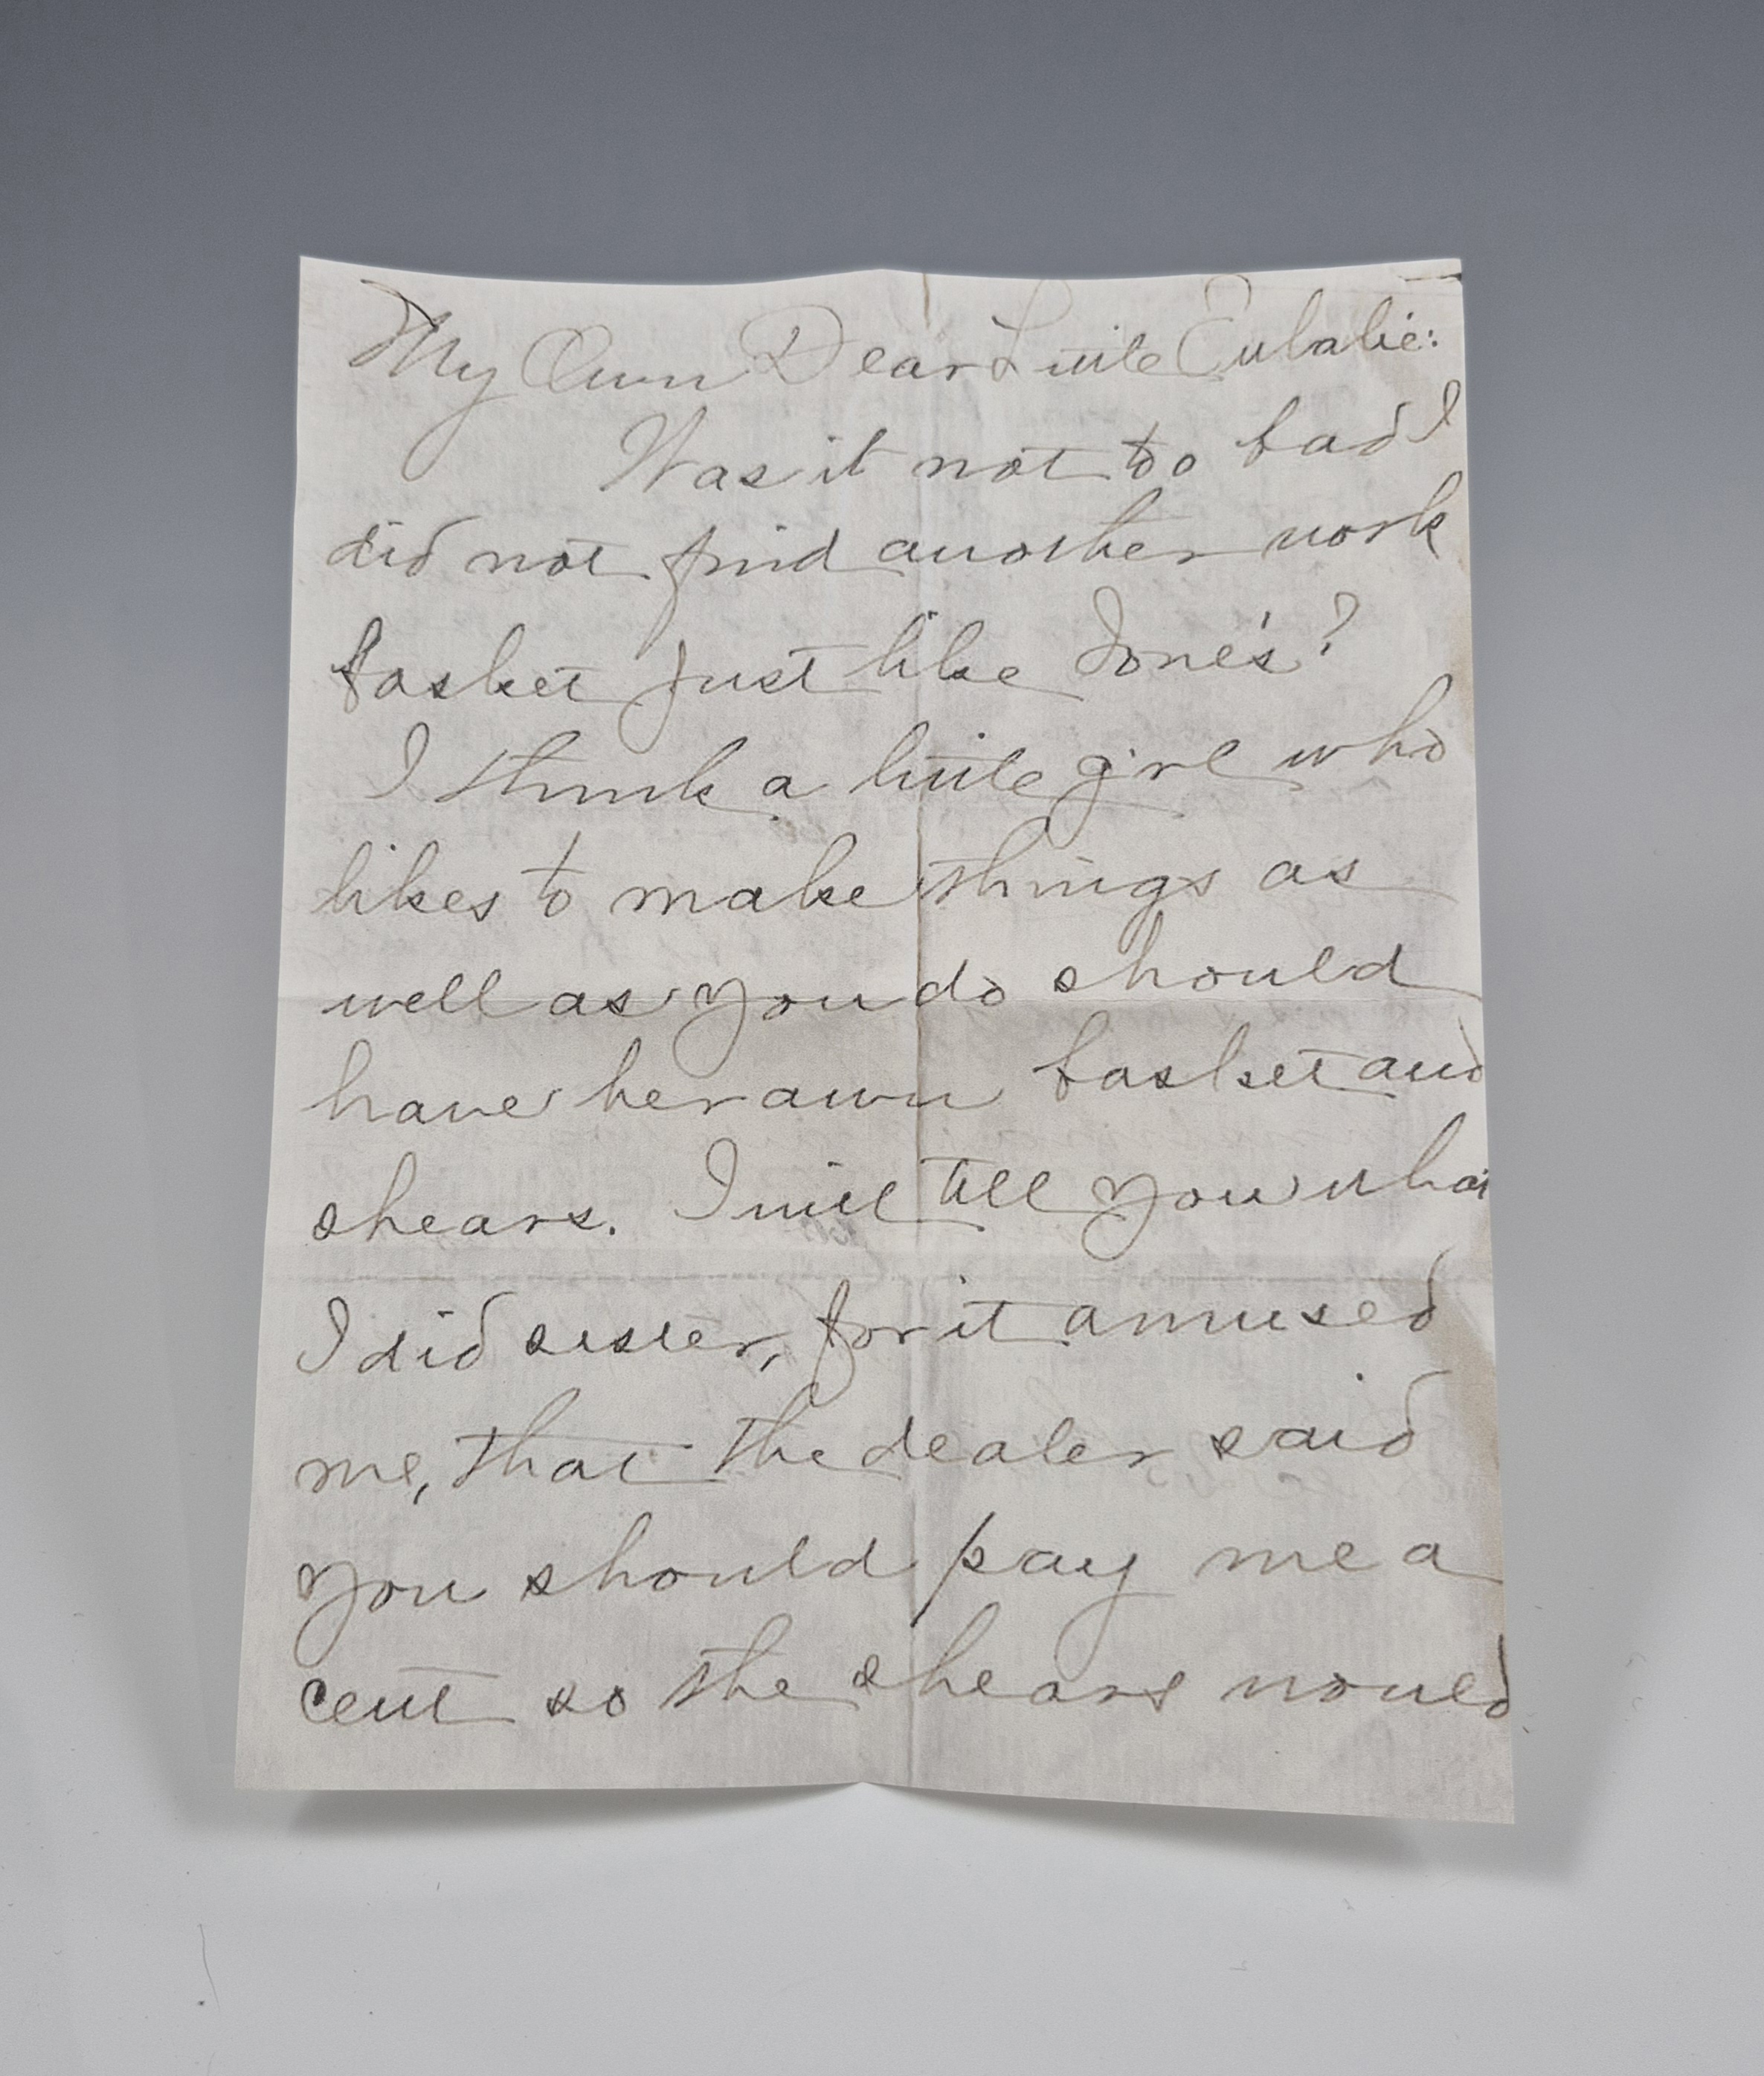 My Own Dear Little Eulalie:
Was it not too bad I
did not find another work
basket just like Ione's?
I think a little girl who
likes to make things as
well as you do should
have her own basket and
shears. I will tell you what
I did sister, for it amused
me, that the dealer said
you should pay me a
cent so the shears would